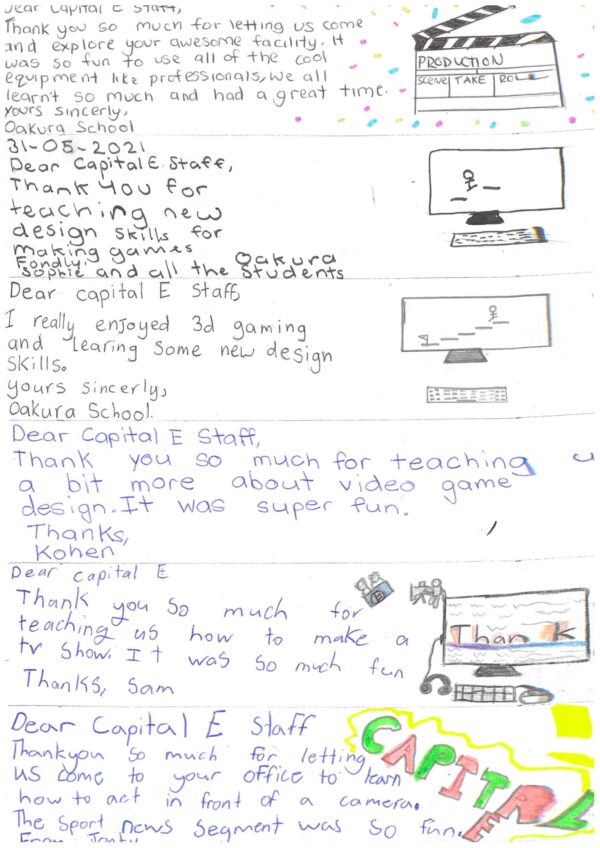 Dear Capital E Staff,
Thank you so much for letting us come
and explore your awesome facility. It
was so fun to use all of the cool
equipment like professionals, we all
learn't so much and had a great time.
yours sincerly,
Oakura School
PRODUCTION
SCENE TAKE ROLL
31-05-2021
Dear Capital E Staff,
Thank You for
teaching new
design skills for
making games
Fondly,
Sophie and all the Oakura Students
Dear capital E Staff,
I really enjoyed 3d gaming
and learing some new design
skills.
yours sincerly,
Oakura School.
Dear Capital E Staff,
Thank you so much for teaching u
a bit more about video game
design. It was super fun.
Thanks,
Kohen
Dear capital E
Thank you so much for
teaching us how to make a
tv show. It was so much fun
Thanks, Sam
Thank
Dear Capital E Staff
Thankyou so much for letting
us come to your office to learn
how to act in front of a camera.
The Sport news segment was so fun.
From
CAPITAL
E